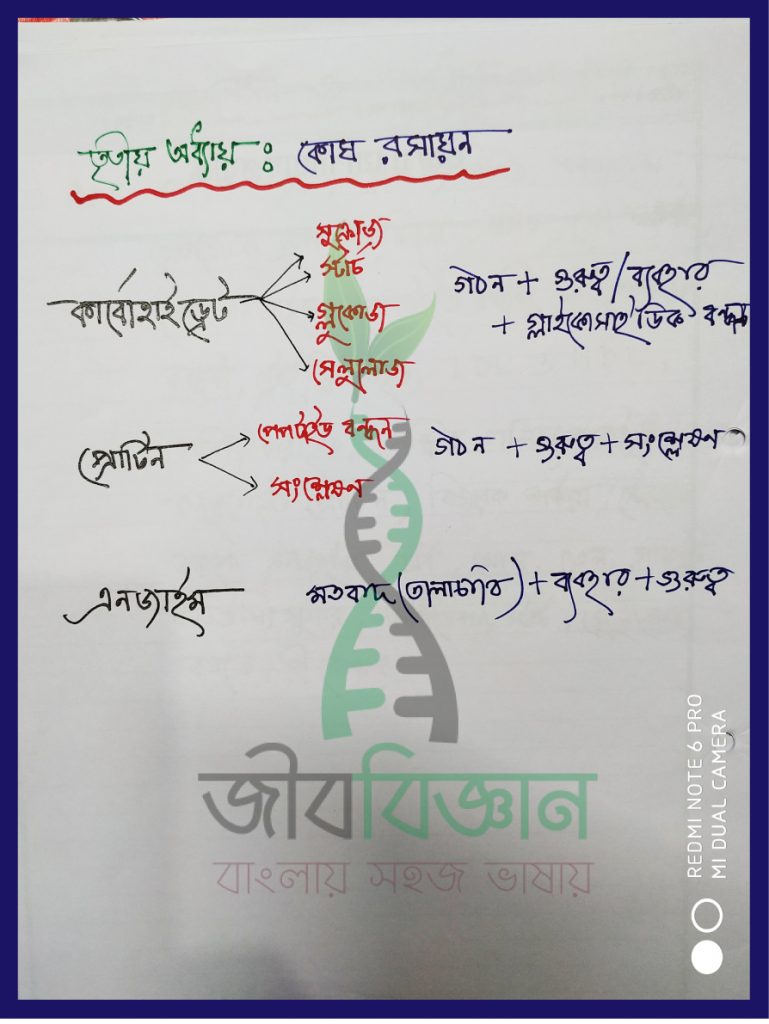 তৃতীয় অধ্যায় : কোষ রসায়ন
সুক্রোজ
স্টার্চ
কার্বোহাইড্রেট
গ্লুকোজ
সেলুলোজ
গঠন + গুরুত্ব/ব্যবহার
+ গ্লাইকোসাইডিক বন্ধন
প্রোটিন
পেপটাইড বন্ধন
সংশ্লেষণ
গঠন + গুরুত্ব + সংশ্লেষণ
এনজাইম
মতবাদ (তালাচাবি) + ব্যবহার + গুরুত্ব
জীববিজ্ঞান
বাংলায় সহজ ভাষায়
REDMI NOTE 6 PRO
MI DUAL CAMERA